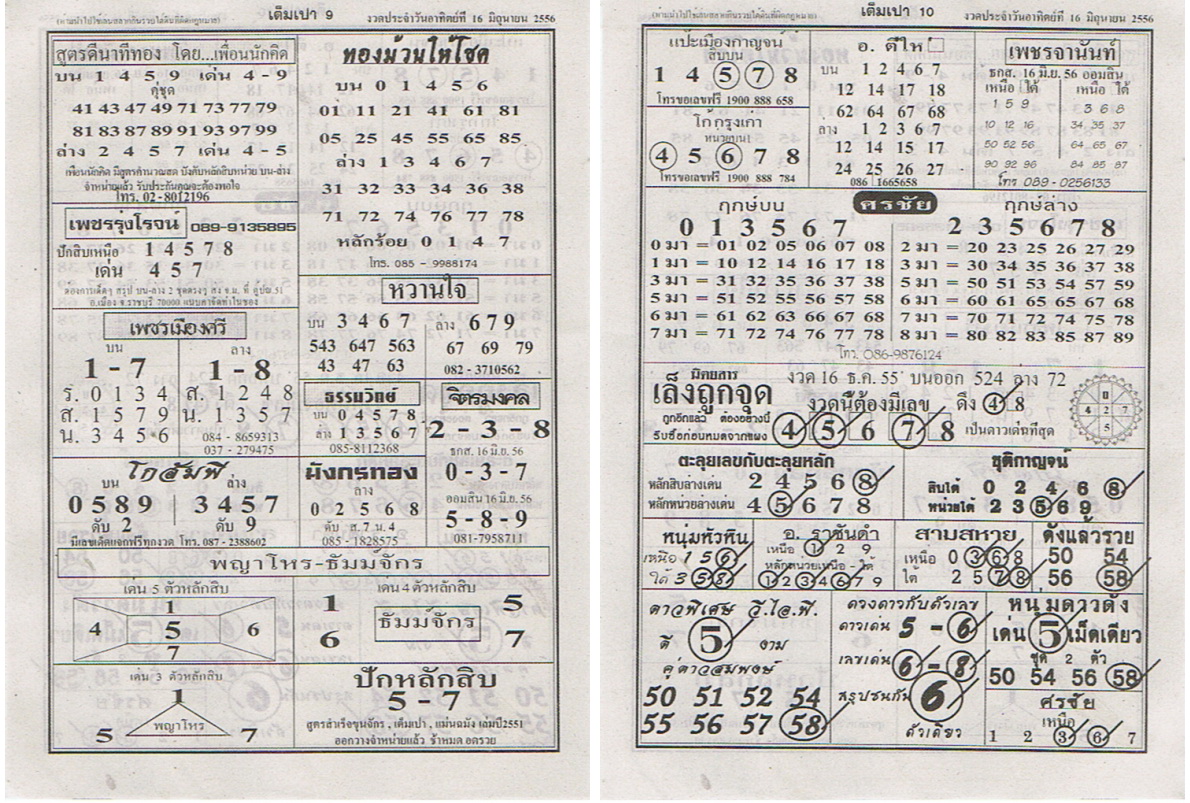 เต็มเปา 9
งวดประจำวันอาทิตย์ที่ 16 มิถุนายน 2556
สูตรดีนาทีทอง โดย...เพื่อนนักคิด
บน 1 4 5 9 เด่น 4 - 9
คู่ชุด
41 43 47 49 71 73 77 79
81 83 87 89 91 93 97 99
ล่าง 2 4 5 7 เด่น 4 - 5
เพื่อนนักคิด มีสูตรคำนวณสด บังคับหลักสิบหน่วย บน-ล่าง
จำหน่ายแล้ว รับประกันคุณจะต้องพอใจ
โทร. 02-8012196
ทองม้วนให้โชค
บน 0 1 4 5 6
01 11 21 41 61 81
05 25 45 55 65 85
ล่าง 1 3 4 6 7
31 32 33 34 36 38
71 72 74 76 77 78
หลักร้อย 0 1 4 7
โทร. 085 - 9988174
เพชรรุ่งโรจน์ 089-9135895
ปักสิบเหนือ 1 4 5 7 8
เด่น 4 5 7
อ.เมือง จ.ราชบุรี 70000
หวานใจ
บน 3 4 6 7 ล่าง 6 7 9
543 647 563 67 69 79
43 47 63 082 - 3710562
เพชรเมืองศรี
บน ล่าง
1 - 7 1 - 8
ร. 0 1 3 4 ส. 1 2 4 8
ส. 1 5 7 9 น. 1 3 5 7
น. 3 4 5 6 084 - 8659313
037 - 279475
ธรรมวิทย์
บน 0 4 5 7 8
ล่าง 1 3 5 6 7
085-8112368
จิตรมงคล
2 - 3 - 8
ธกส. 16 มิ.ย. 56
0 - 3 - 7
ออมสิน 16 มิ.ย. 56
5 - 8 - 9
081-7958711
โกสัมพี
บน ล่าง
0 5 8 9 3 4 5 7
ดับ 2 ดับ 9
มีเลขเด็ดแจกฟรีทุกงวด โทร. 087 - 2388602
มังกรทอง
ล่าง
0 2 5 6 8
ดับ ส. 7 น. 4
085 - 1828575
พญาโหร-ธัมมจักร
เด่น 5 ตัวหลักสิบ
1
4 5 6
7
เด่น 4 ตัวหลักสิบ
1 5
ธัมมจักร
6 7
เด่น 3 ตัวหลักสิบ
1
พญาโหร
5 7
ปักหลักสิบ
5 - 7
สูตรสำเร็จขุนจักร , เต็มเปา , แม่นฉมัง เล่มปี2551
ออกวางจำหน่ายแล้ว ช้าหมด อดรวย
เต็มเปา 10
งวดประจำวันอาทิตย์ที่ 16 มิถุนายน 2556
แป๊ะเมืองกาญจน์
สิบบน
1 4 5 7 8
โทรขอเลขฟรี 1900 888 658
โก้ กรุงเก่า
หน่วยบน
4 5 6 7 8
โทรขอเลขฟรี 1900 888 784
อ. ตี๋ให
บน 1 2 4 6 7
12 14 17 18
62 64 67 68
ล่าง 1 2 3 6 7
12 14 15 17
24 25 26 27
086 1665658
เพชรจานันท์
ธกส. 16 มิ.ย. 56 ออมสิน
เหนือ ใต้ เหนือ ใต้
1 5 9 3 6 8
10 12 16 34 35 37
50 52 56 64 65 67
90 92 96 84 85 87
โทร 089 - 0256133
ฤกษ์บน ศรชัย ฤกษ์ล่าง
0 1 3 5 6 7 2 3 5 6 7 8
0 มา = 01 02 05 06 07 08 2 มา = 20 23 25 26 27 29
1 มา = 10 12 14 16 17 18 3 มา = 30 34 35 36 37 38
3 มา = 31 32 35 36 37 38 5 มา = 50 51 53 54 57 59
5 มา = 51 52 55 56 57 58 6 มา = 60 61 65 65 67 68
6 มา = 61 62 63 66 67 68 7 มา = 70 71 72 74 75 78
7 มา = 71 72 74 76 77 78 8 มา = 80 82 83 85 87 89
โทร. 086-9876124
นิตยสาร
เล็งถูกจุด
งวด 16 ธ.ค. 55 บนออก 524 ล่าง 72
งวดนี้ต้องมีเลข ดึง 4 8
ถูกอีกแล้ว ต้องอย่างนี้
รีบซื้อก่อนหมดจากแผง
4 5 6 7 8 เป็นดาวเด่นที่สุด
8
4 2 7
5
ตะลุยเลขกับตะลุยหลัก
หลักสิบล่างเด่น 2 4 5 6 8
หลักหน่วยล่างเด่น 4 5 6 7 8
ชุติกาญจน์
สิบใต้ 0 2 4 6 8
หน่วยใต้ 2 3 5 6 9
หนุ่มหัวหิน
เหนือ 1 5 6
ใต้ 3 5 8
อ. ราชันดำ
เหนือ 1 2 9
หลักหน่วยเหนือ - ใต้
1 2 3 4 6 7 9
สามสหาย
เหนือ 0 3 6 8
ใต้ 2 5 7 8
ดังแล้วรวย
50 54
56 58
ดาวพิเศษ วี.ไอ.พี.
ดี 5 งาม
คู่ดาวสมพงษ์
50 51 52 54
55 56 57 58
ดวงดาวกับตัวเลข
ดาวเด่น 5 - 6
เลขเด่น 6 - 8
สรุปชนกัน 6
ตัวเดียว
หนุ่มดาวดัง
เด่น 5 เม็ดเดียว
ชุด 2 ตัว
50 54 56 58
ศรชัย
เหนือ
1 2 3 6 7